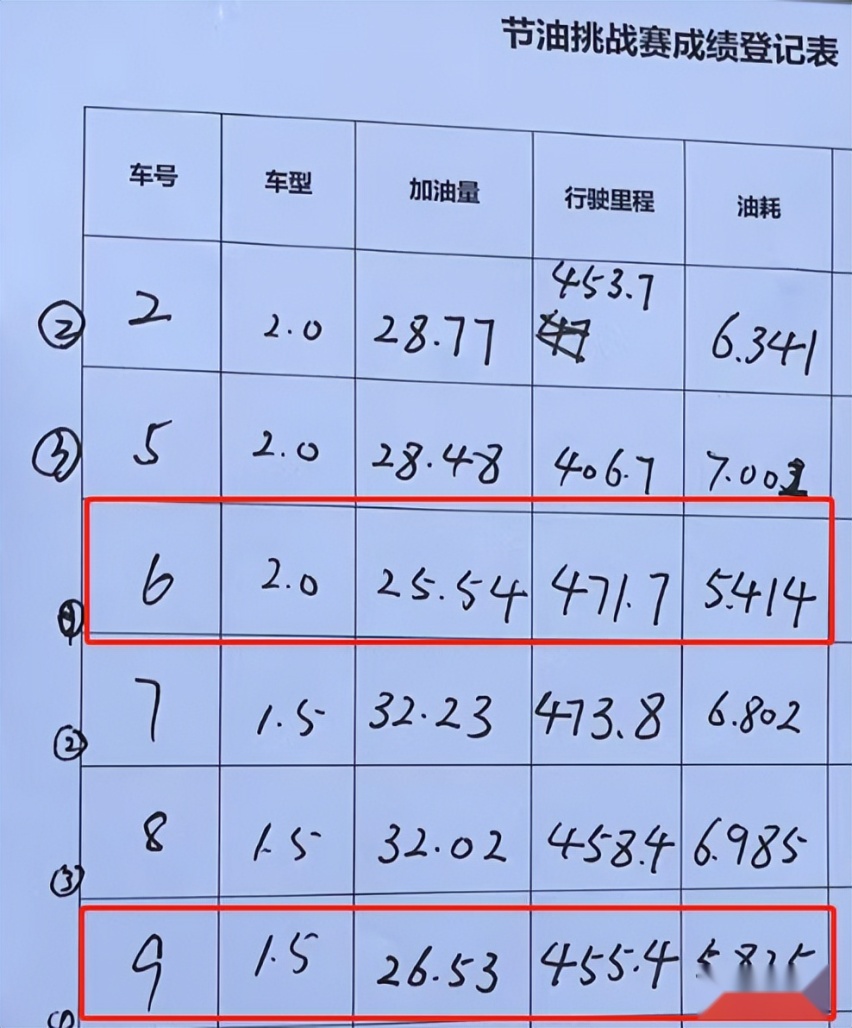 节油挑战赛成绩登记表
车号 车型 加油量 行驶里程 油耗
453.7
② 2 2.0 28.77 6.341
③ 5 2.0 28.48 406.7 7.003
① 6 2.0 25.54 471.7 5.414
② 7 1.5 32.23 473.8 6.802
③ 8 1.5 32.02 458.4 6.985
9 1.5 26.53 455.4